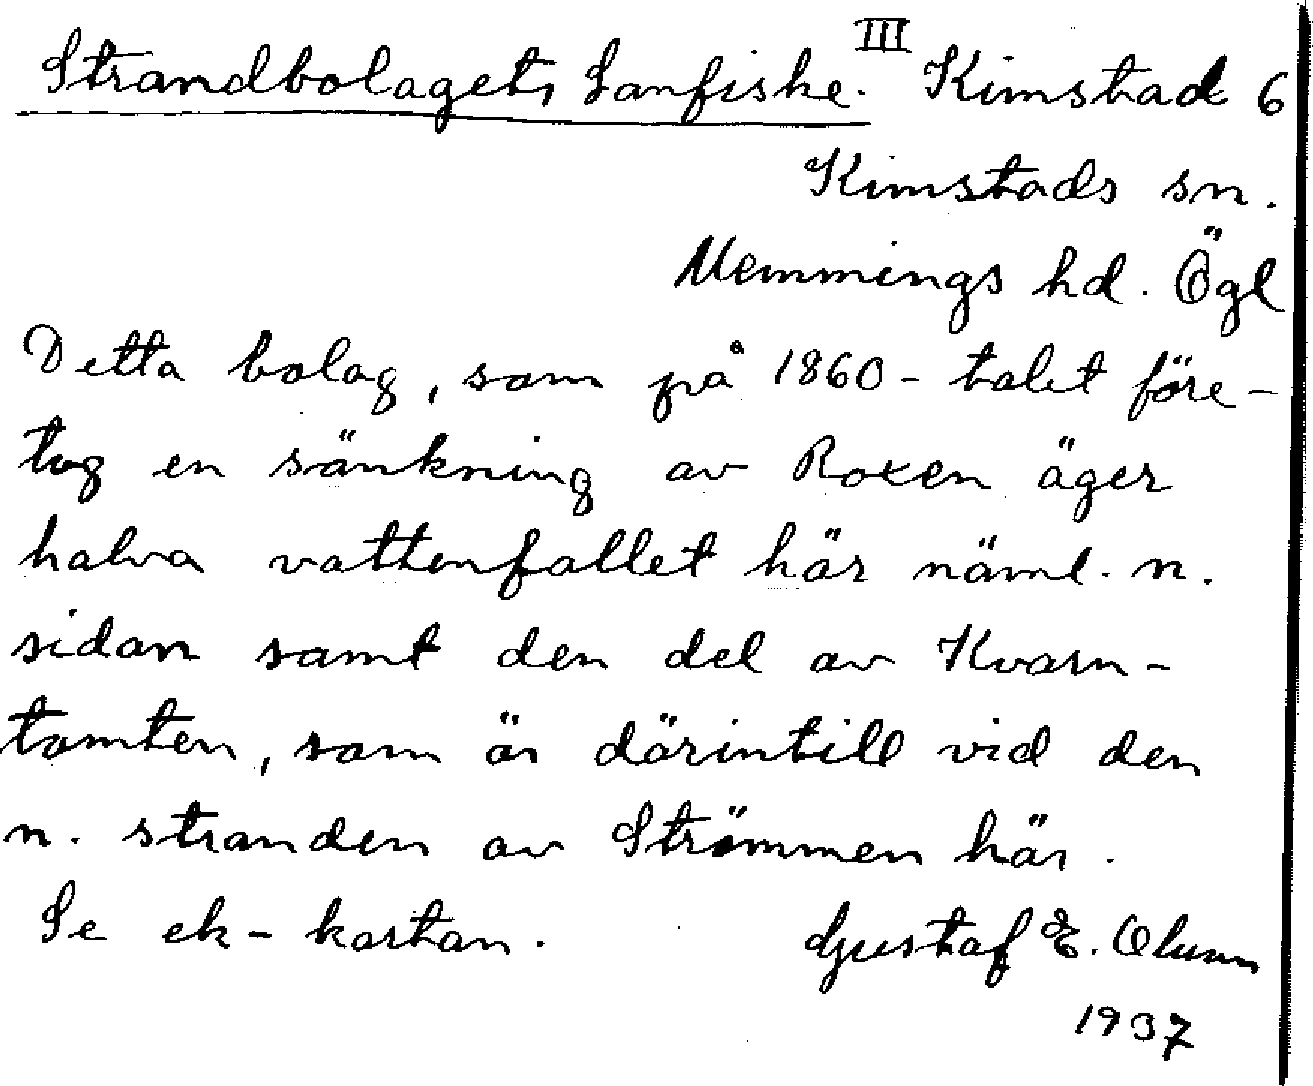 Strandbolagets Lanfiske. III Kimstad 6
Kimstads sn.
Memmings hd. Ögl
Detta bolag, som på 1860-talet före-
tog en sänkning av Roxen äger
halva vattenfallet här näml. n.
sidan samt den del av Kvarn-
tomten, som är därintill vid den
n. stranden av Strömmen här.
Se ek-kartan. Gustaf E.
1937